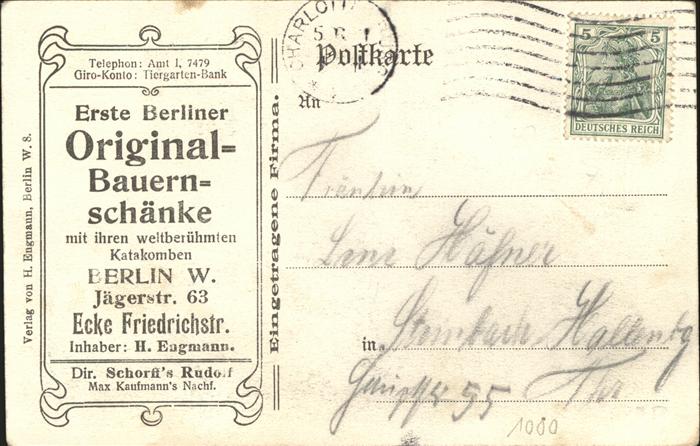 Verlag von H. Engmann, Berlin W. 8.
Telephon: Amt I, 7479
Giro-Konto: Tiergarten-Bank
Erste Berliner
Original=
Bauern=
schänke
mit ihren weltberühmten
Katakomben
BERLIN W.
Jägerstr. 63
Ecke Friedrichstr.
Inhaber: H. Engmann.
Dir. Schorff's Rudolf
Max Kaufmann's Nachf.
Eingetragene Firma.
CHARLOTT
Postkarte
5 5
DEUTSCHES REICH
An
Fräulein
Häfner
in Steinbach Hallenbg
Hauptstr 55 Thr
1080